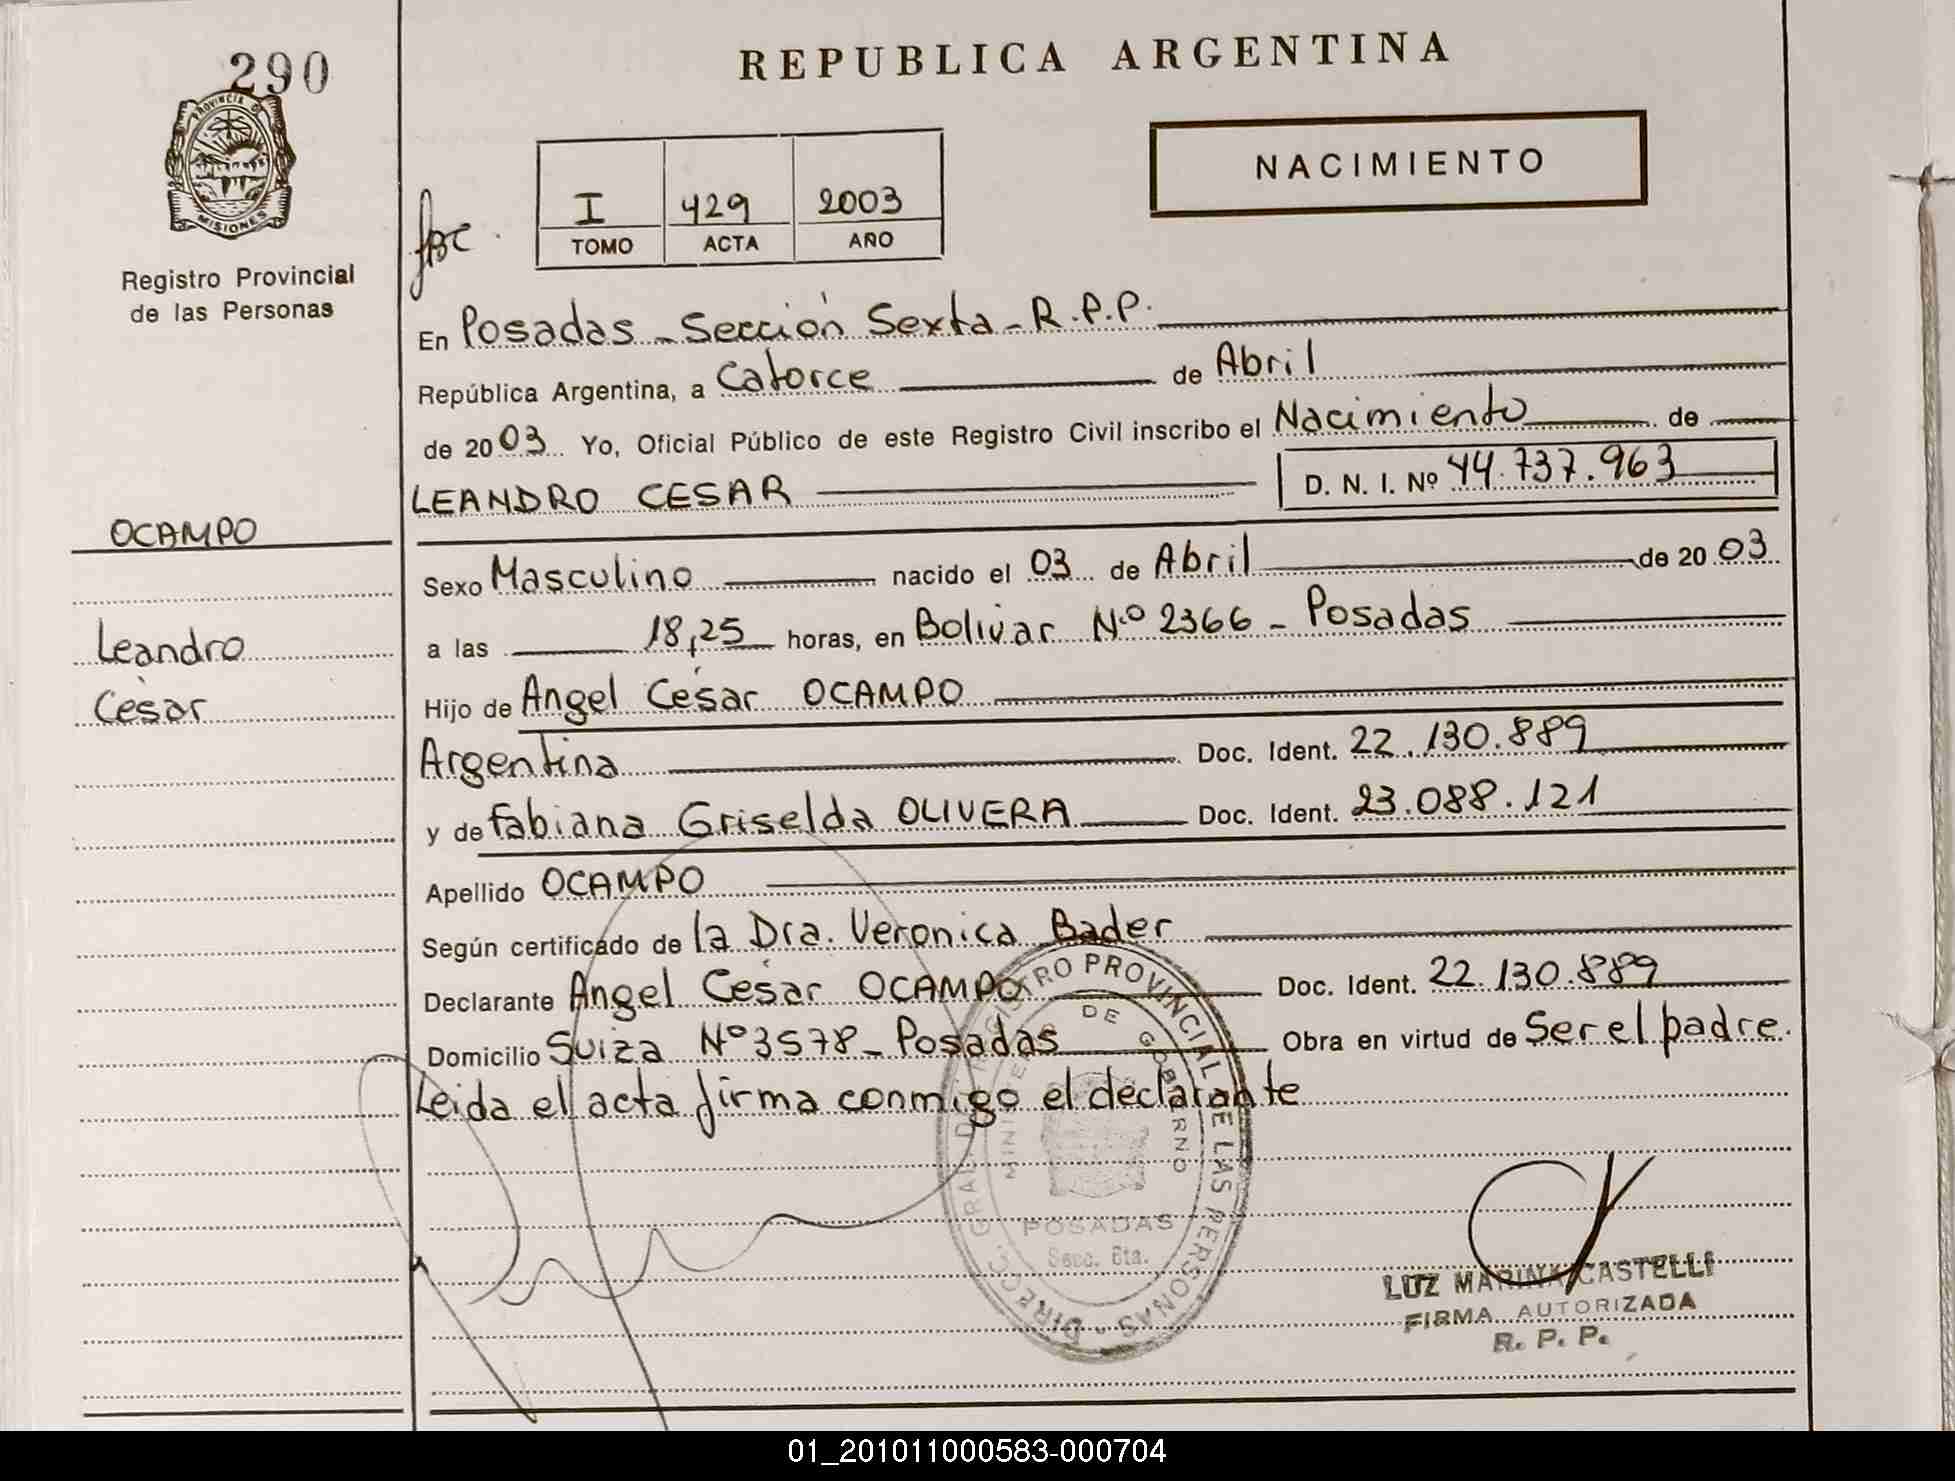 290
PROVINCIA D
MISIONES
Registro Provincial
de las Personas
OCAMPO
Leandro
César
REPUBLICA ARGENTINA
NACIMIENTO
I 429 2003
TOMO ACTA AÑO
En Posadas - Sección Sexta - R.P.P.
República Argentina, a Catorce de Abril
de 2003 Yo, Oficial Público de este Registro Civil inscribo el Nacimiento de
LEANDRO CESAR D. N. I. Nº 44.737.963
Sexo Masculino nacido el 03 de Abril de 2003
a las 18,25 horas, en Bolivar N.º 2366 - Posadas
Hijo de Angel César OCAMPO
Argentina Doc. Ident. 22.130.889
y de Fabiana Griselda OLIVERA Doc. Ident. 23.088.121
Apellido OCAMPO
Según certificado de la Dra. Veronica Bader
Declarante Angel César OCAMPO Doc. Ident. 22.130.889
Domicilio Suiza Nº 3578 - Posadas Obra en virtud de Ser el padre.
Leida el acta firma conmigo el declarante
DIRECC. GRAL. DEL REGISTRO PROVINCIAL DE LAS PERSONAS
MINISTERIO DE GOBIERNO
POSADAS
Secc. 6ta.
LUZ MARINA CASTELLI
FIRMA AUTORIZADA
R. P. P.
01_201011000583-000704